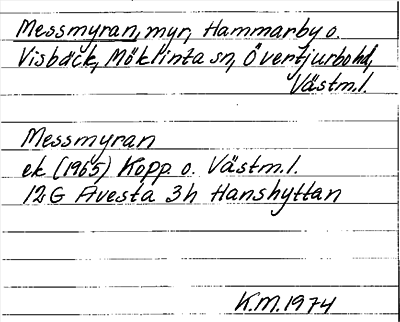 Messmyran, myr, Hammarby o.
Visbäck, Möklinta sn, Övertjurbo hd,
Västm.l.
Messmyran
ek (1965) Kopp. o. Västm.l.
12G Avesta 3h Hanshyttan
K.M. 1974